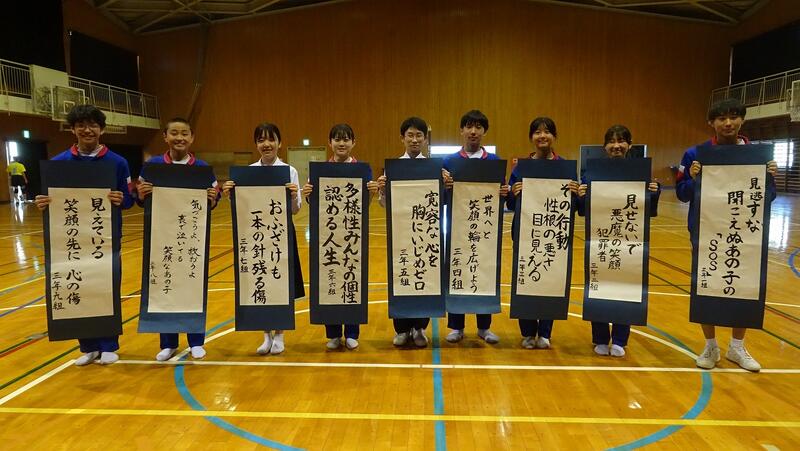 見逃すな
聞こえぬあの子の
「SOS」
三年一組
見せないで
悪魔の笑顔
犯罪者
三年二組
その行動
性根の悪さ
目に見える
三年三組
世界へと
笑顔の輪を広げよう
三年四組
寛容な心を
胸にいじめゼロ
三年五組
多様性みんなの個性
認める人生
三年六組
おふざけも
一本の針残る傷
三年七組
気づこうよ、救おうよ
裏で泣いてる
笑顔なあの子
三年八組
見えている
笑顔の先に 心の傷
三年九組